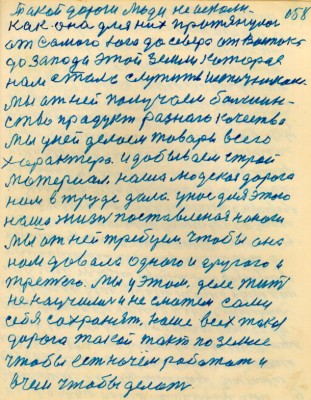 058
Такой дороги люди не искали.
как она для них протянулась
от самого юга до севера от Востока
до запода этой земли которае
нам стала служить источникам.
мы от ней получаем большин-
ство продукт разнаго качества
мы у ней делаем товары всего
характера. и добываем строй
материал. наша людская дорога
нам в труде дала. у нас для этого
наша жизнь поставленая на ноги
мы от ней требуем. чтобы она
нам давала одного и другого и
третьего. мы у этом, деле жить
не научились и не сможем сами
себя сохранять, наше всех такая
дорога такой такт по земле
чтобы есть на чем работать и
в чем чтобы делать